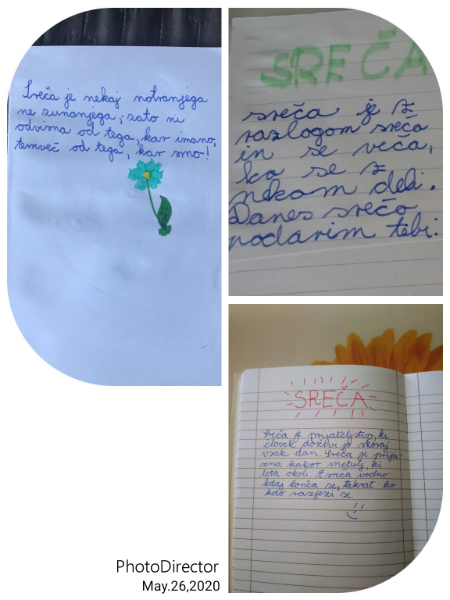 Sreča je nekaj notranjega
ne zunanjega, zato ni
odvisna od tega, kar imamo,
temveč od tega, kar smo!
SREČA
sreča je z
razlogom sreča
in se veča,
ko se z
nekom deli.
Danes srečo
podarim tebi.
SREČA
Sreča je prijateljstvo, ki
človek doživi jo skoraj
vsak dan. Sreča je
kakor metulj, ki
leta okoli. Sreča vedno
kdaj konča se, takrat ko
kdo razjezi se
PhotoDirector
May.26,2020